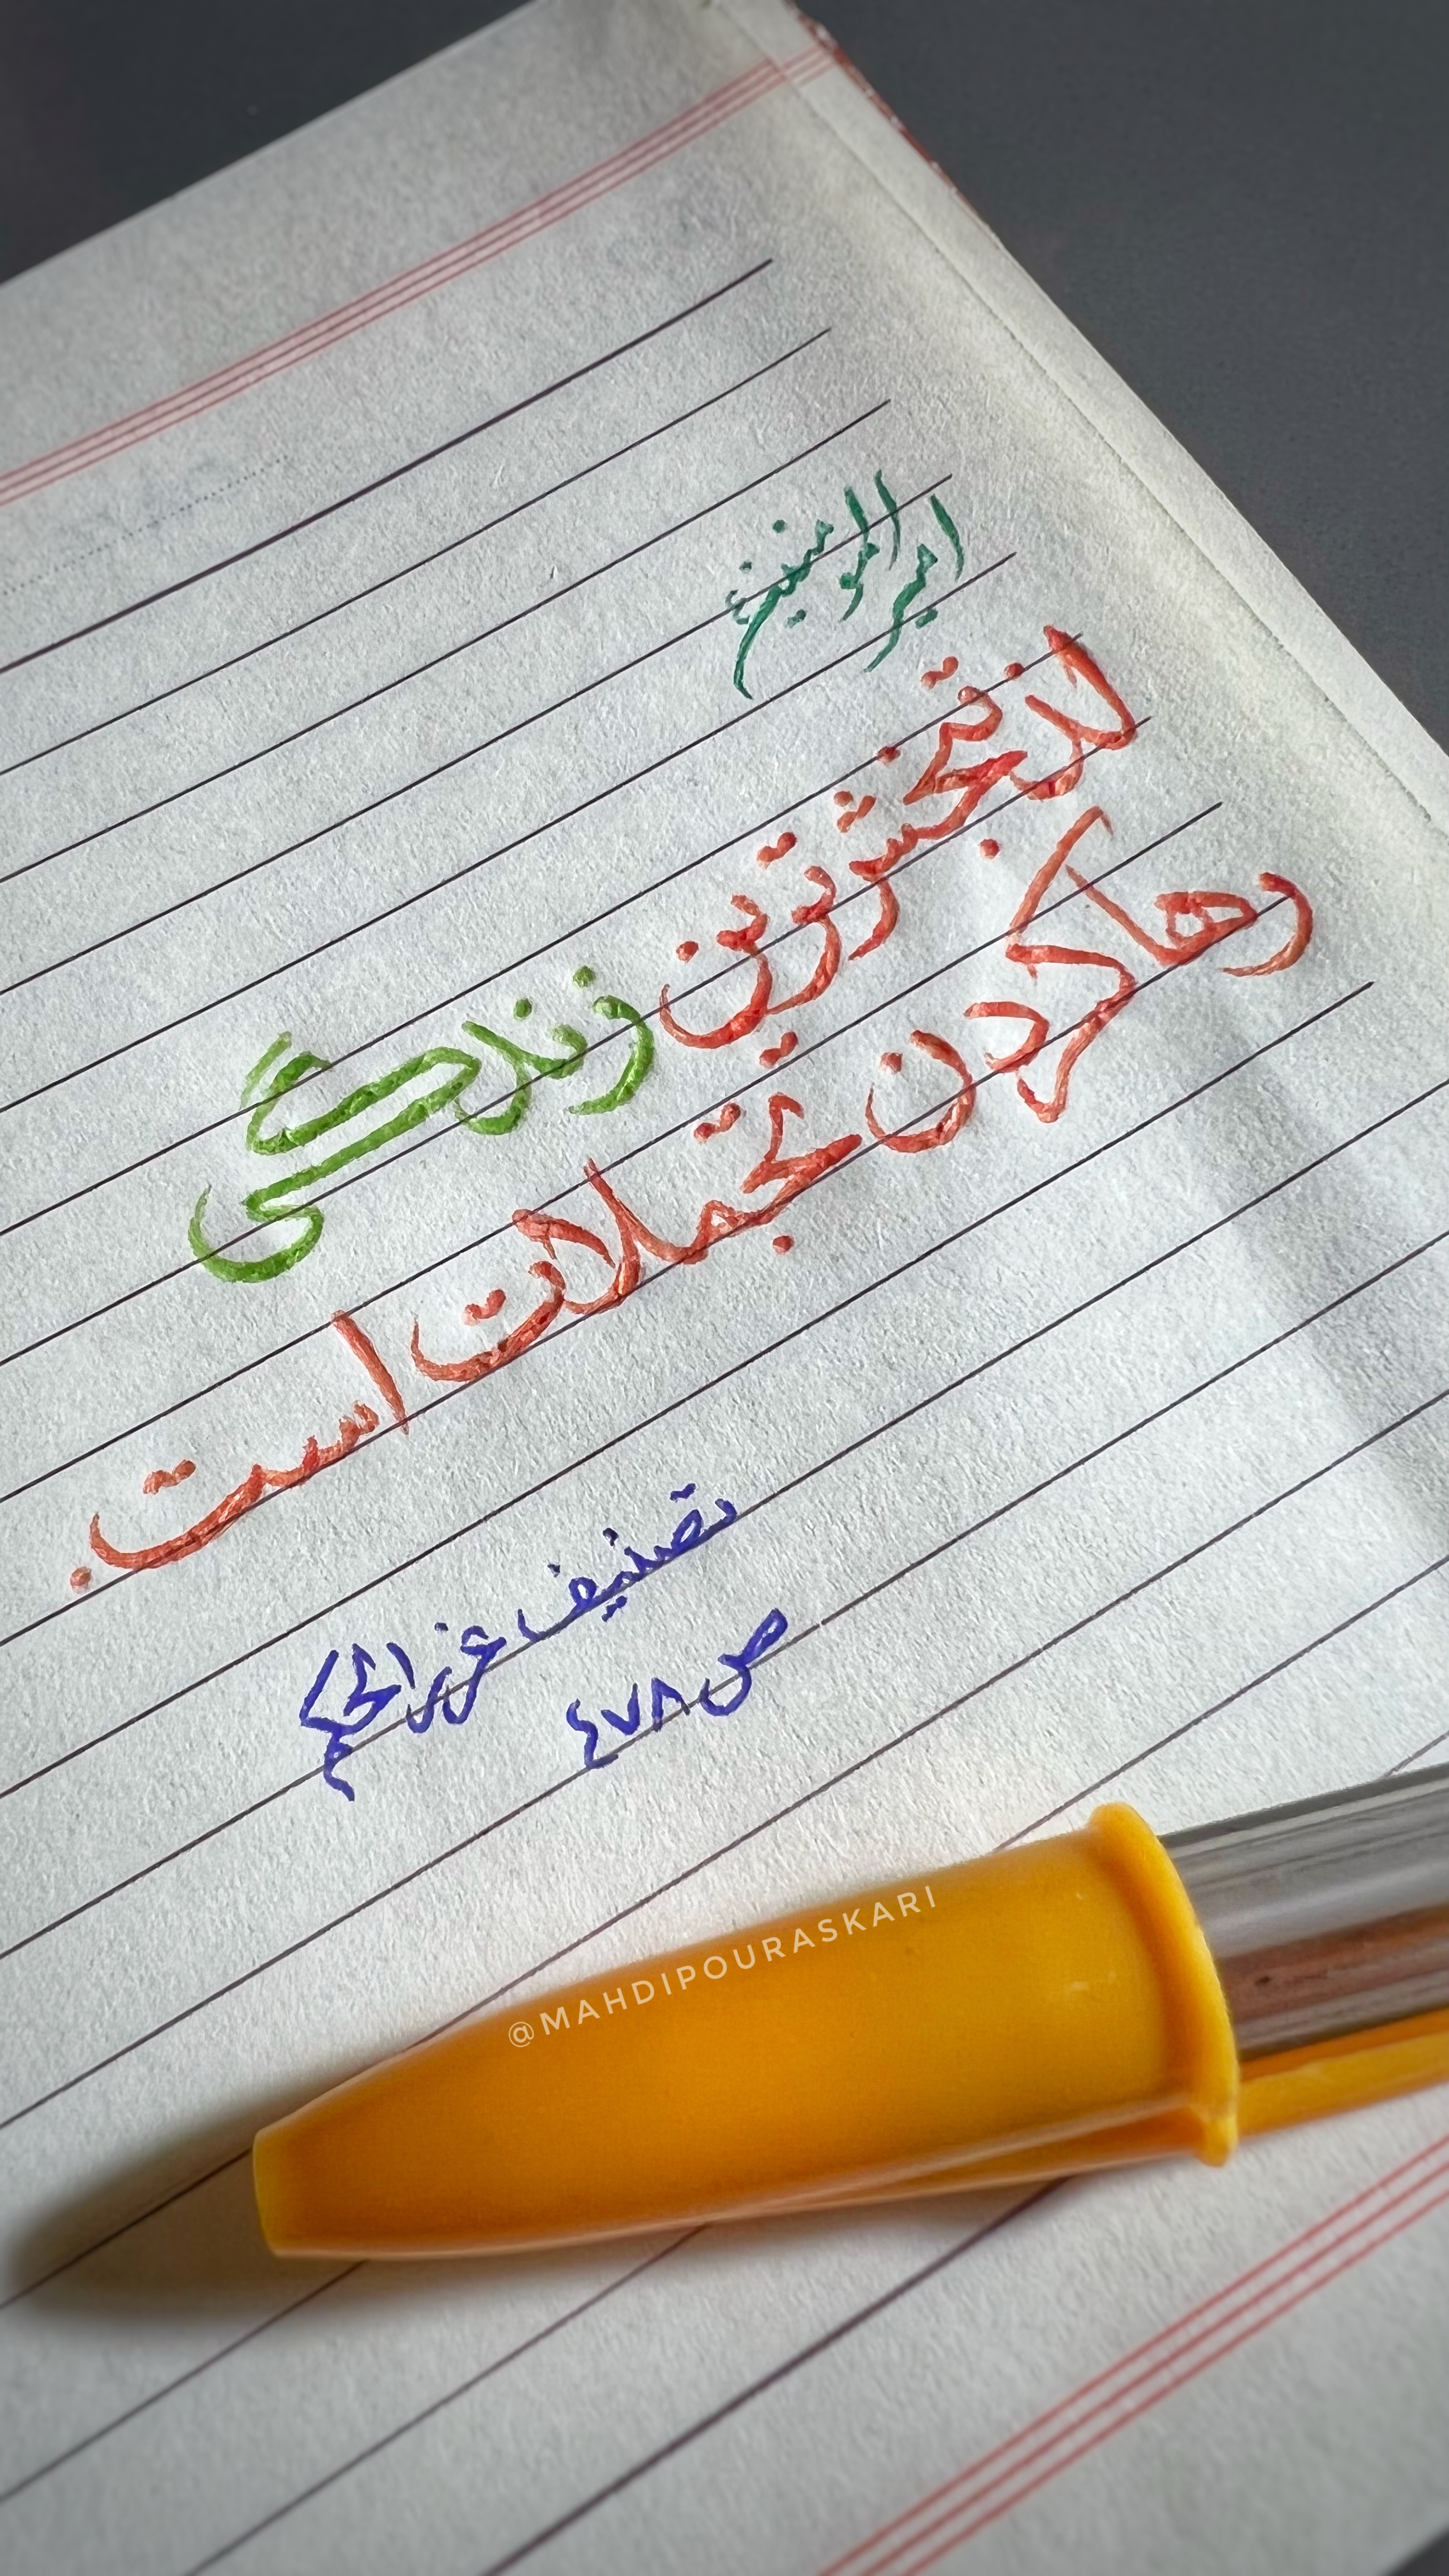 امیرالمومنین ع
لذتبخش‌ترین زندگی
رها کردن تجملات است.
تصنیف غررالحکم
ص ٤٧٨
@MAHDIPOURASKARI